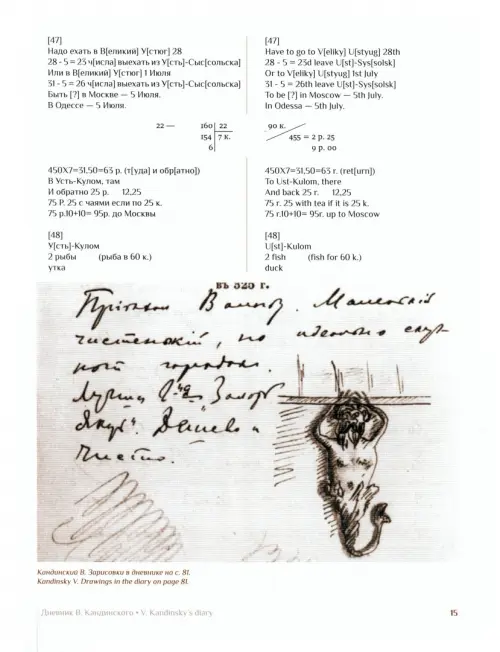 [47]
Надо ехать в В[еликий] У[стюг] 28
28 - 5 = 23 ч[исла] выехать из У[сть]-Сыс[сольска]
Или в В[еликий] У[стюг] 1 Июля
31 - 5 = 26 ч[исла] выехать из У[сть]-Сыс[сольска]
Быть [?] в Москве — 5 Июля.
В Одессе — 5 Июля.
22 — 160 22
154 7 к.
6
450X7=31,50=63 р. (т[уда] и обр[атно])
В Усть-Кулом, там
И обратно 25 р. 12,25
75 Р. 25 с чаями если по 25 к.
75 р.10+10= 95р. до Москвы
[48]
У[сть]-Кулом
2 рыбы (рыба в 60 к.)
утка
[47]
Have to go to V[eliky] U[styug] 28th
28 - 5 = 23d leave U[st]-Sys[solsk]
Or to V[eliky] U[styug] 1st July
31 - 5 = 26th leave U[st]-Sys[solsk]
To be [?] in Moscow — 5th July.
In Odessa — 5th July.
90 к.
455 = 2 р. 25
9 р. 00
450X7=31,50=63 r. (ret[urn])
To Ust-Kulom, there
And back 25 r. 12,25
75 r. 25 with tea if it is 25 k.
75 r.10+10= 95r. up to Moscow
[48]
U[st]-Kulom
2 fish (fish for 60 k.)
duck
въ 520 г.
Маленький
чистенький, но идеально
городок.
Дешево и
чисто.
Кандинский В. Зарисовки в дневнике на с. 81.
Kandinsky V. Drawings in the diary on page 81.
Дневник В. Кандинского • V. Kandinsky's diary 15